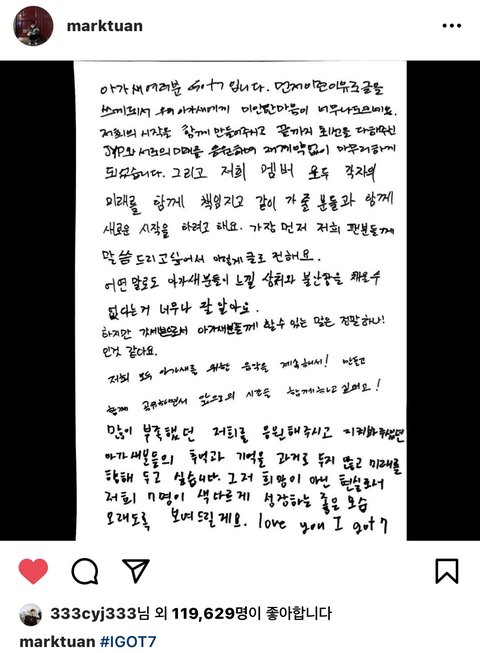 marktuan
아가새여러분 Got7 입니다. 먼저 이런 이유로 글을
쓰게 되서 우리 아가새에게 미안한 마음이 너무나 드네요.
저희의 시작을 함께 만들어주시고 끝까지 최선을 다해주신
JYP와 서로의 미래를 응원하며 재계약없이 마무리하게
되었습니다. 그리고 저희 멤버 모두 각자의
미래를 함께 책임지고 같이 가 줄 분들과 함께
새로운 시작을 하려고 해요. 가장 먼저 저희 팬분들께
말씀 드리고 싶어서 이렇게 글로 전해요.
어떤 말로도 아가새분들이 느낄 상처와 불안감을 채울수
없다는거 너무나 잘 알아요.
하지만 갓세븐으로서 아가새분들께 할수 있는 말은 정말 하나!
인것 같아요.
저희 모두 아가새를 위한 음악을 계속해서! 만들고
함께 공유하면서 앞으로의 시간을 함께하고 싶어요!
많이 부족했던 저희를 응원해주시고 지켜봐주셨던
아가새분들의 추억과 기억을 과거로 두지 않고 미래를
향해 두고 싶습니다. 그저 희망이 아닌 현실로서
저희 7명이 색다르게 성장하는 좋은 모습
오래도록 보여드릴게요. love you I got7
333cyj333님 외 119,629명이 좋아합니다
marktuan #IGOT7